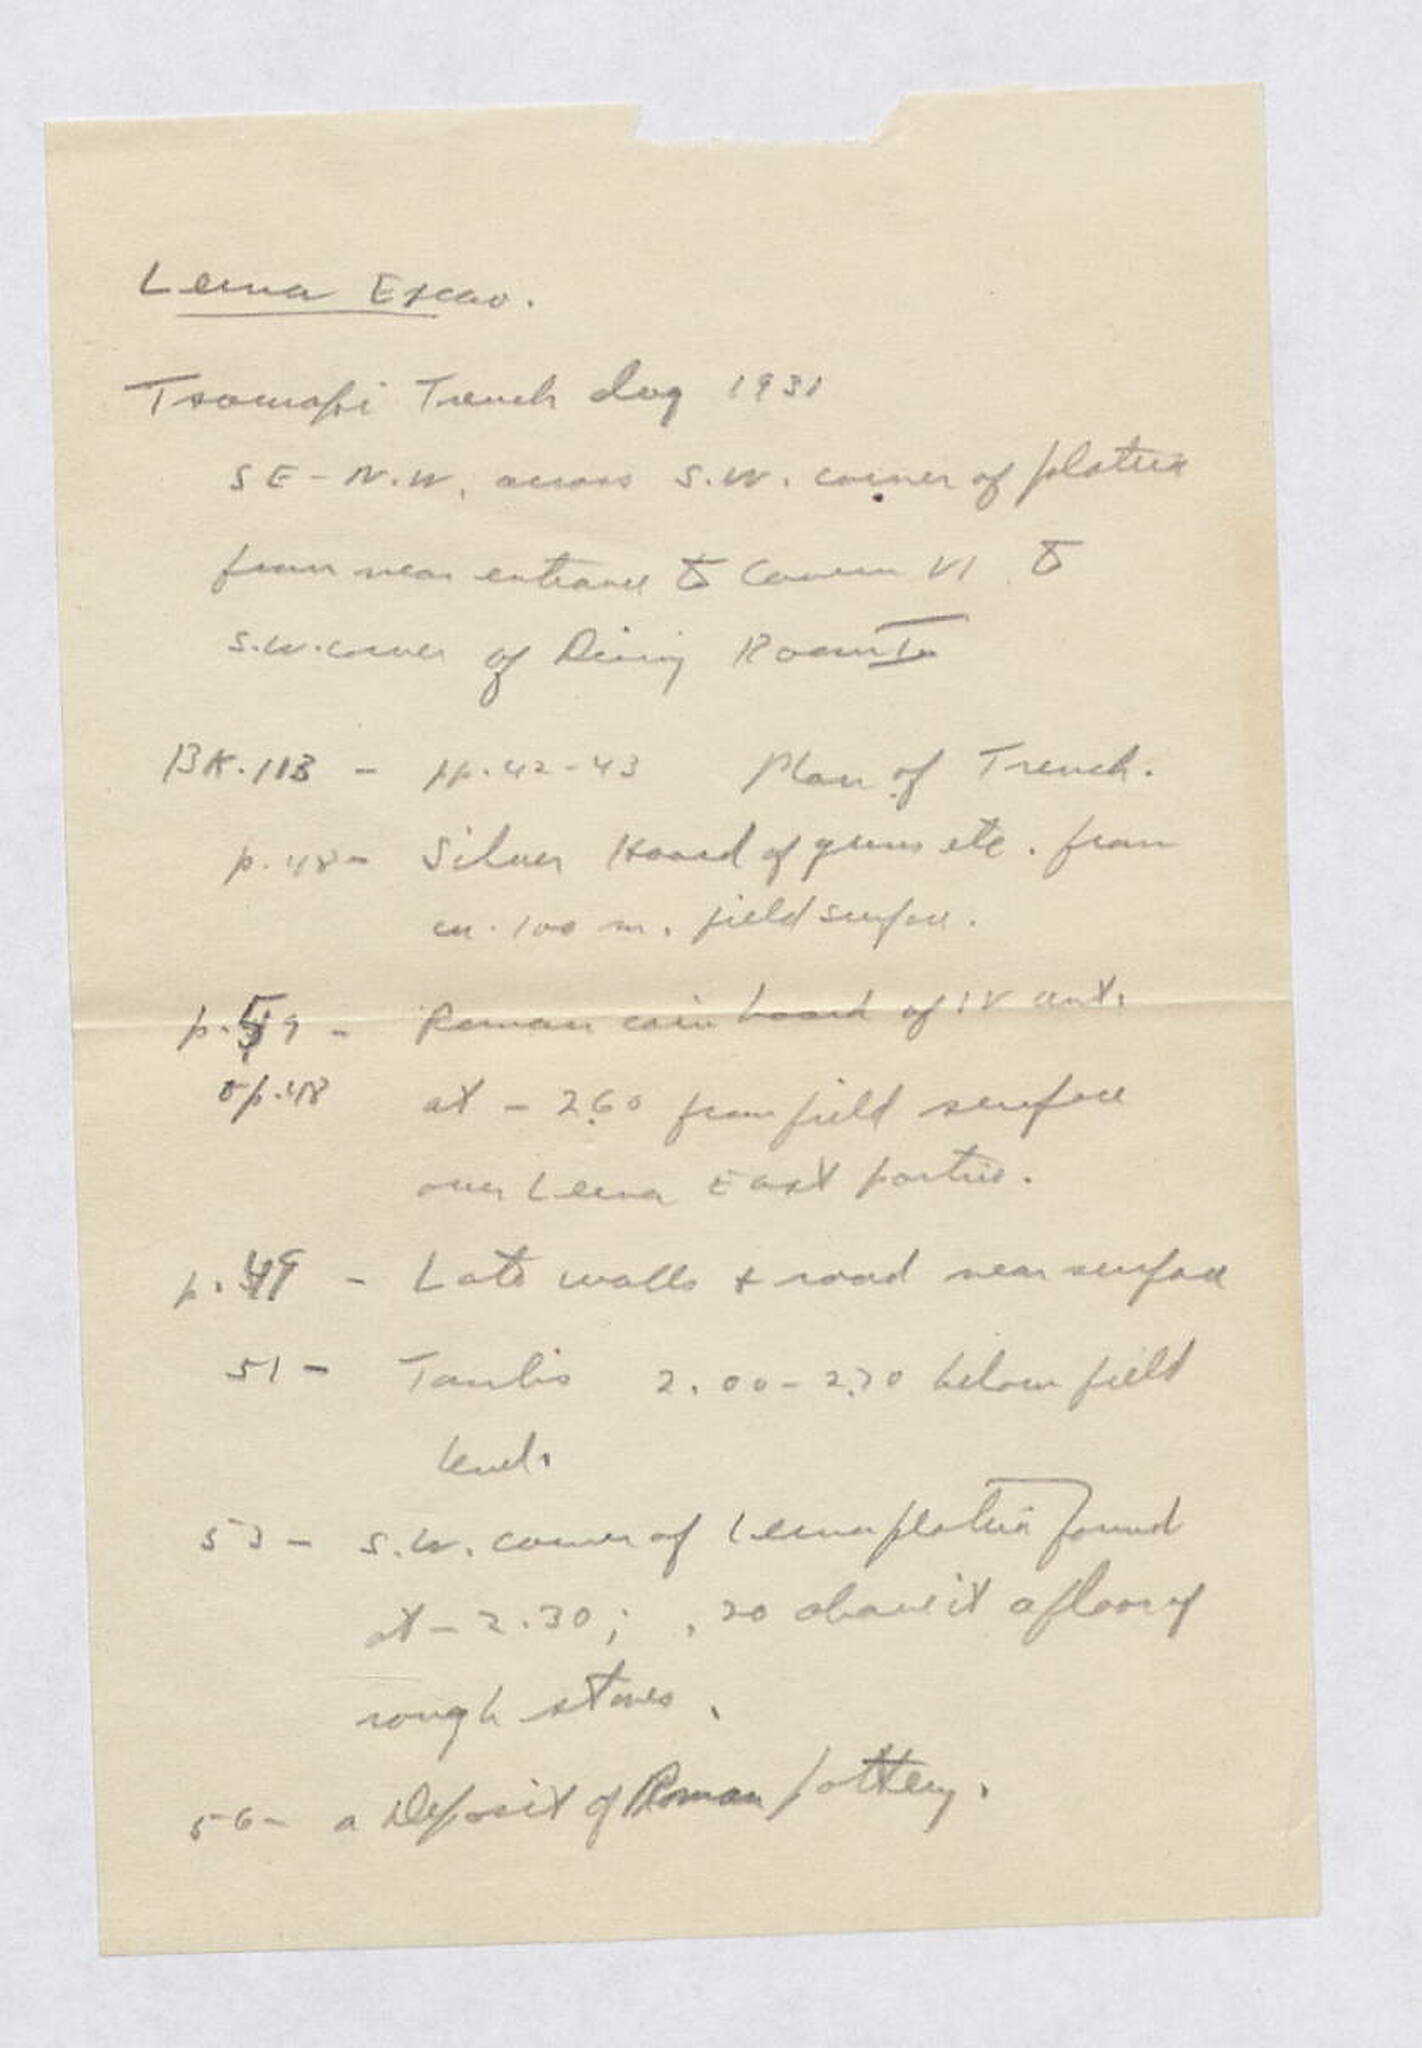 Lerna Excav.
Tsoumapi Trench dug 1931
SE - N.W. across S.W. corner of plateia
from near entrance to Cavern VI to
S.W. corner of Dining Room I
BK. 113 - pp. 42-43 Plan of Trench.
p. 48 - Silver Hoard of gems etc. from
ca. 1.00 m. field surface.
p. 59 - Roman coin hoard of IV cent.
p. 48 at - 2.60 from field surface
over Lerna East portico.
p. 49 - Late walls & road near surface
51 - Tombs 2.00 - 2.70 below field
level.
53 - S.W. corner of Lerna plateia found
at - 2.30; .20 above it a floor of
rough stones.
56 - a Deposit of Roman pottery.